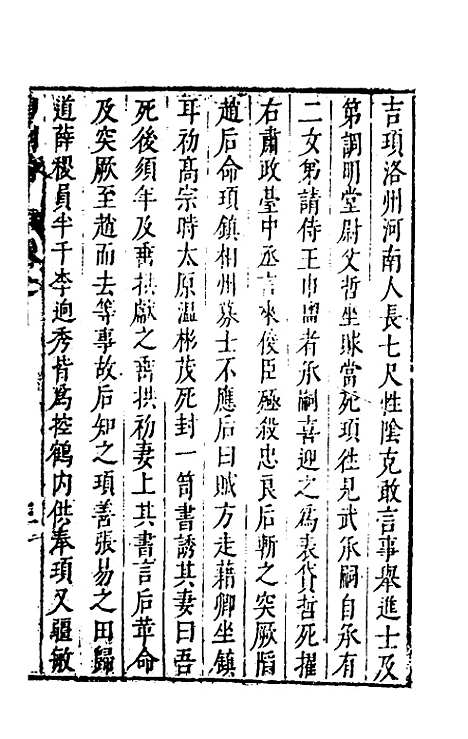 吉頊洛州河南人長七尺性陰克敢言事舉進士及
第調明堂尉父哲坐賕當死頊往見武承嗣自承有
二女弟請侍王巾盥者承嗣喜迎之為表貸哲死擢
右肅政臺中丞言來俊臣極殺忠良后斬之突厥陷
趙后命頊鎮相州募士不應后曰賊方走藉卿坐鎮
耳初高宗時太原溫彬茂死封一笥書誘其妻曰吾
死後須年及垂拱獻之垂拱初妻上其書言后革命
及突厥至趙而去等事故后知之頊善張易之田歸
道薛稷員半千李迥秀皆爲控鶴內供奉頊又彊敏